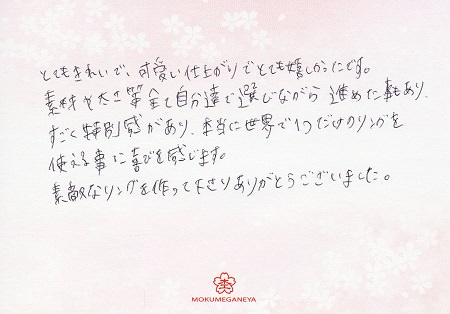 とてもきれいで、可愛い仕上がりでとても嬉しかったです。
素材や太さ等全て自分達で選びながら進めた事もあり、
すごく特別感があり、本当に世界で1つだけのリングを
使える事に喜びを感じます。
素敵なリングを作って下さりありがとうございました。
MOKUMEGANEYA